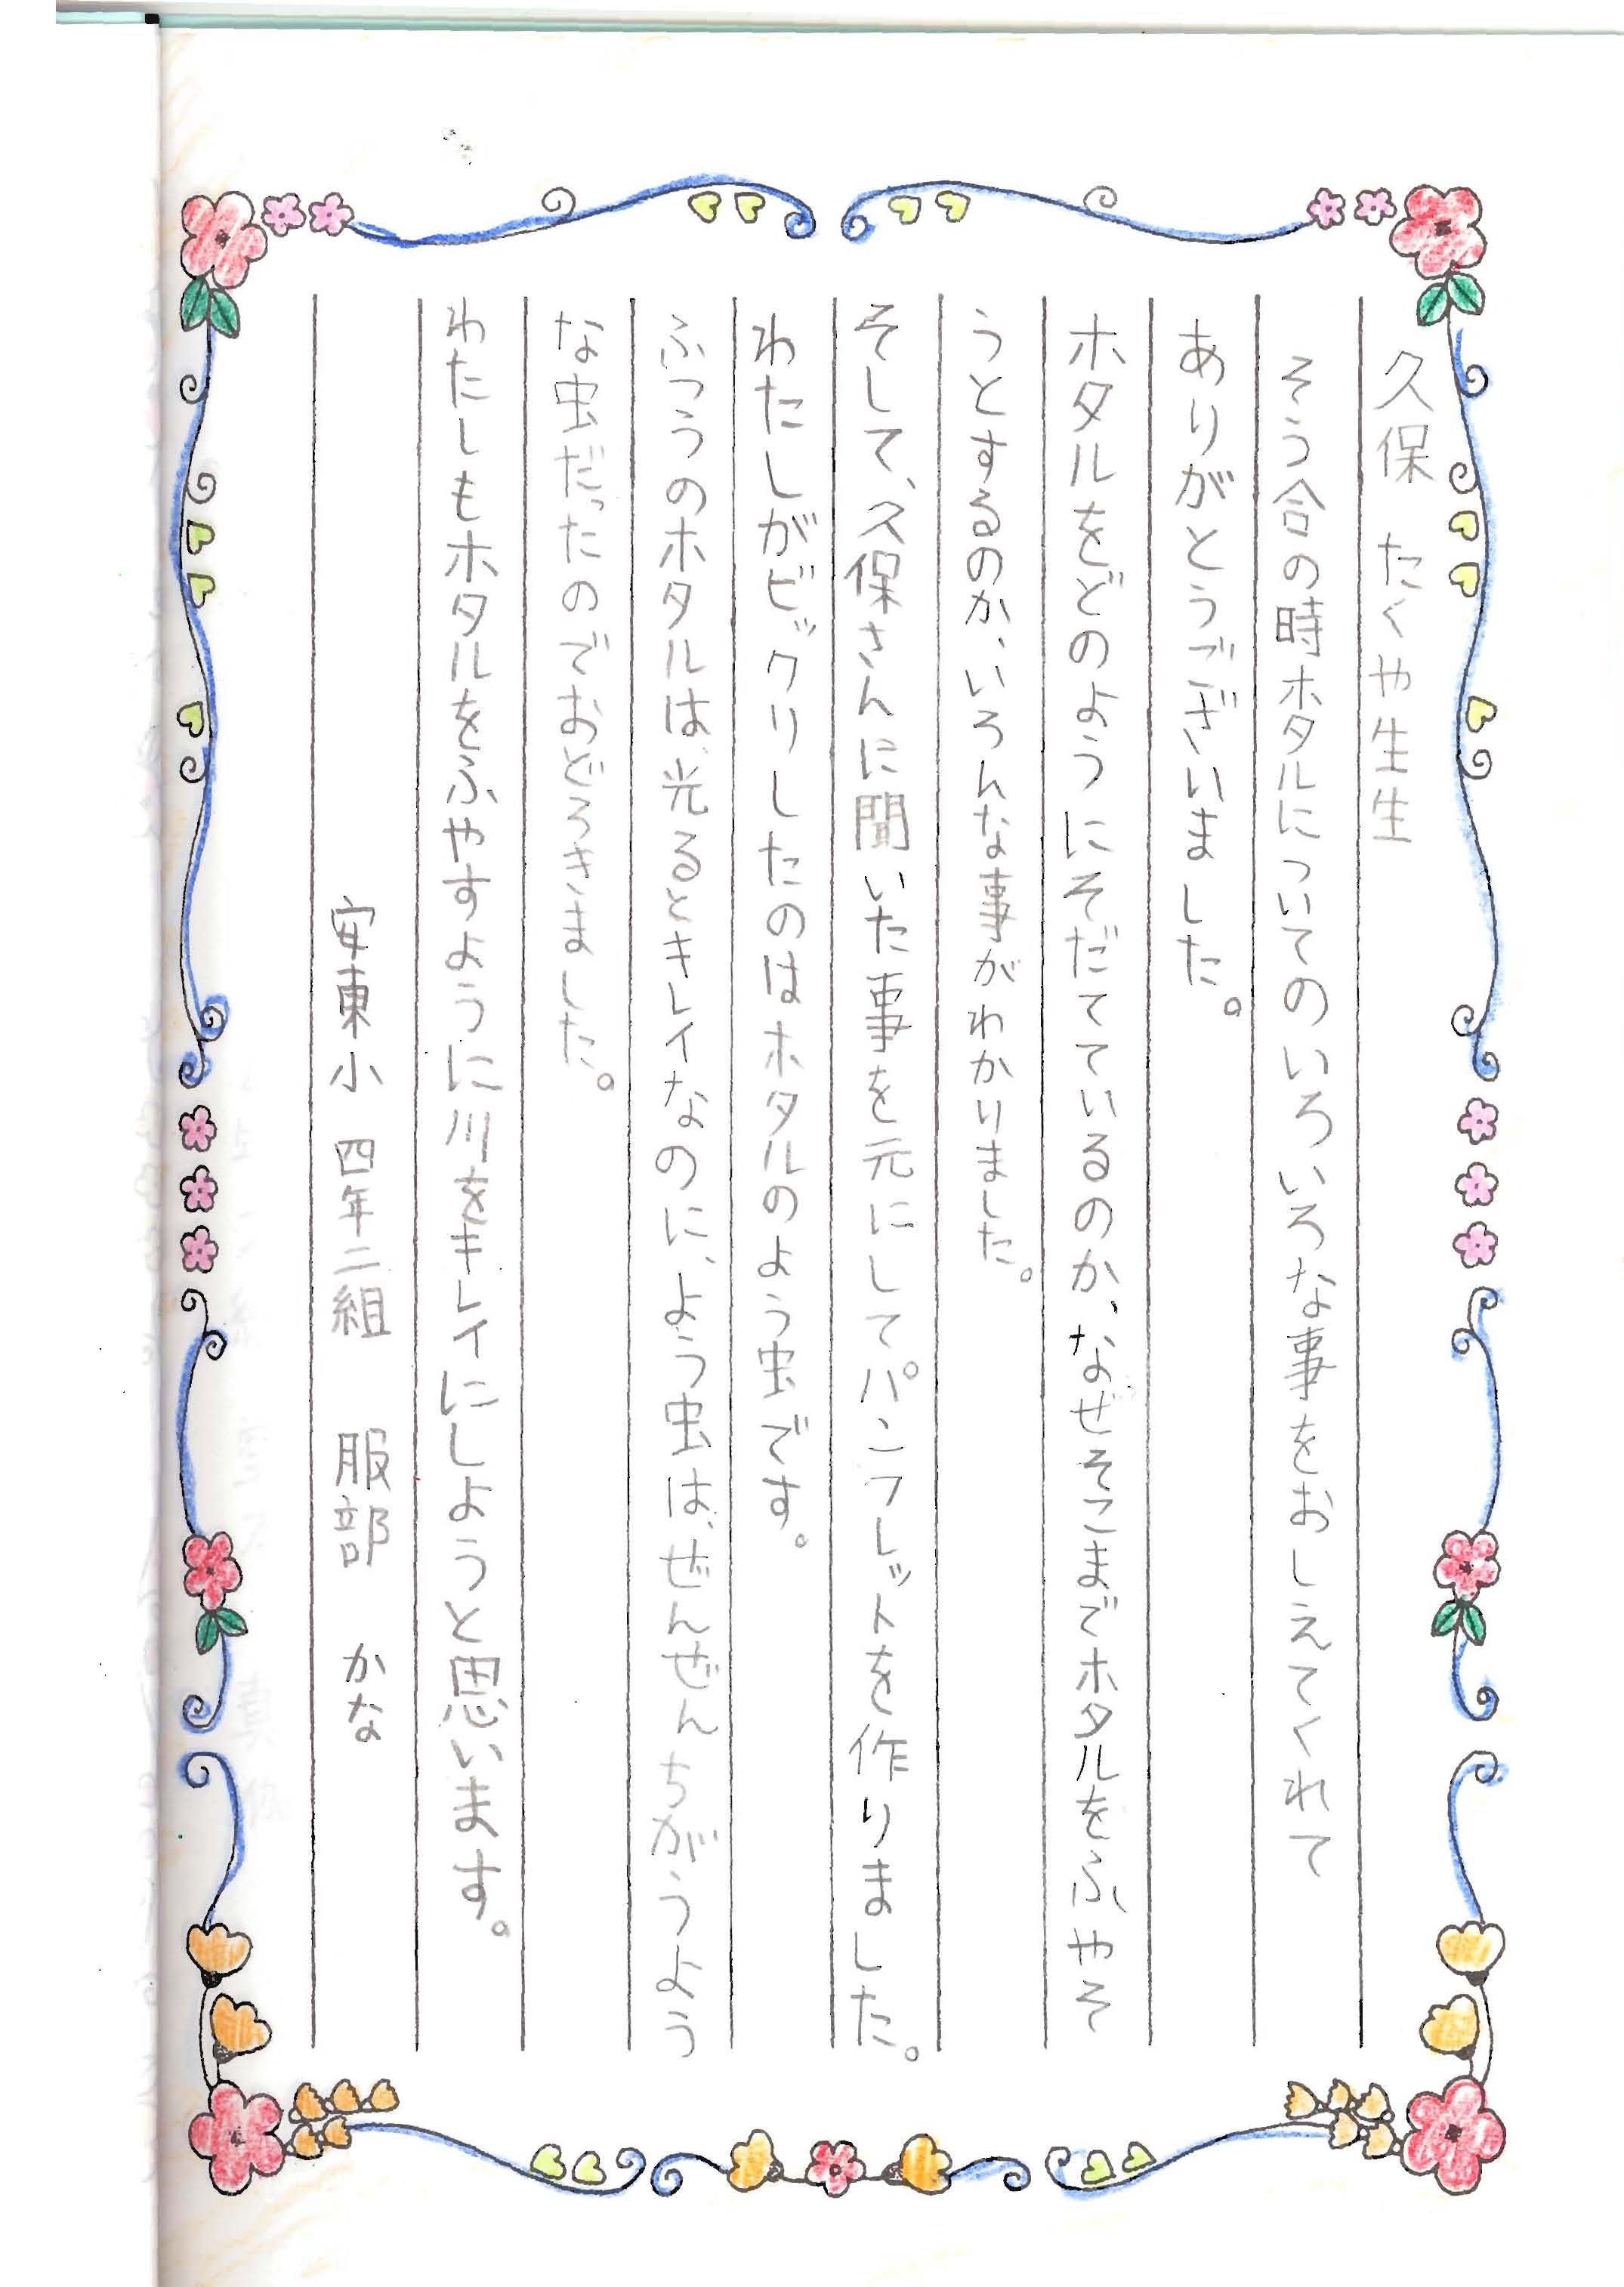 久保 たくや生生
そう合の時ホタルについてのいろいろな事をおしえてくれて
ありがとうございました。
ホタルをどのようにそだてているのか、なぜそこまでホタルをふやそ
うとするのか、いろんな事がわかりました。
そして、久保さんに聞いた事を元にしてパンフレットを作りました。
わたしがビックリしたのはホタルのよう虫です。
ふつうのホタルは、光るとキレイなのに、よう虫は、ぜんぜんちがうよう
な虫だったのでおどろきました。
わたしもホタルをふやすように川をキレイにしようと思います。
安東小 四年二組 服部 かな